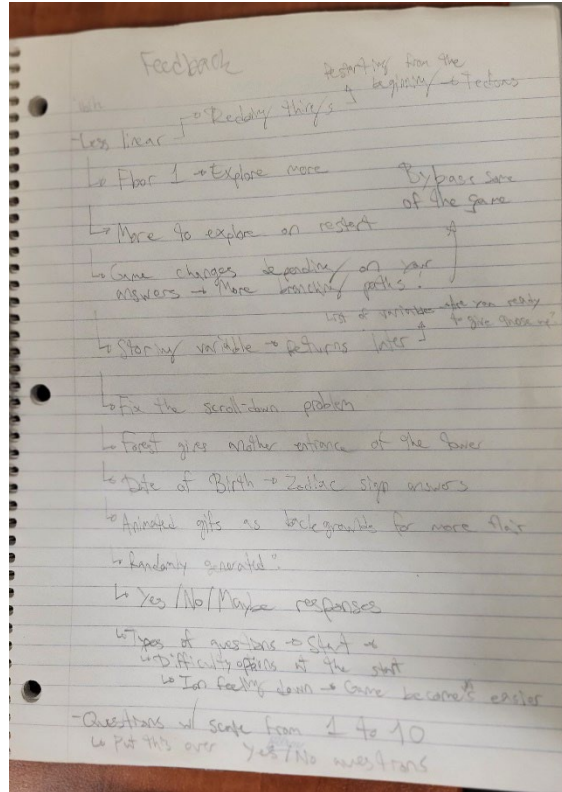 Feedback
restarting from the
beginning → Tedious
→ Redoing things
-Less linear
↳ Floor 1 → Explore more
Bypass some
of the game
↳ More to explore on restart
↳ Game changes depending on your
answers → More branching paths!
List of variables are you ready
to give those up?
↳ Storing variable → Returns later
↳ Fix the scroll-down problem
↳ Forest gives another entrance of the tower
↳ Date of Birth → Zodiac sign answers
↳ Animated gifs as backgrounds for more flair
↳ Randomly generated?
↳ Yes/No/Maybe responses
↳ Types of questions → Start
↳ Difficulty options at the start
↳ I am feeling down → Game becomes easier
-Questions w/ scale from 1 to 10
↳ Put this over Yes/No questions